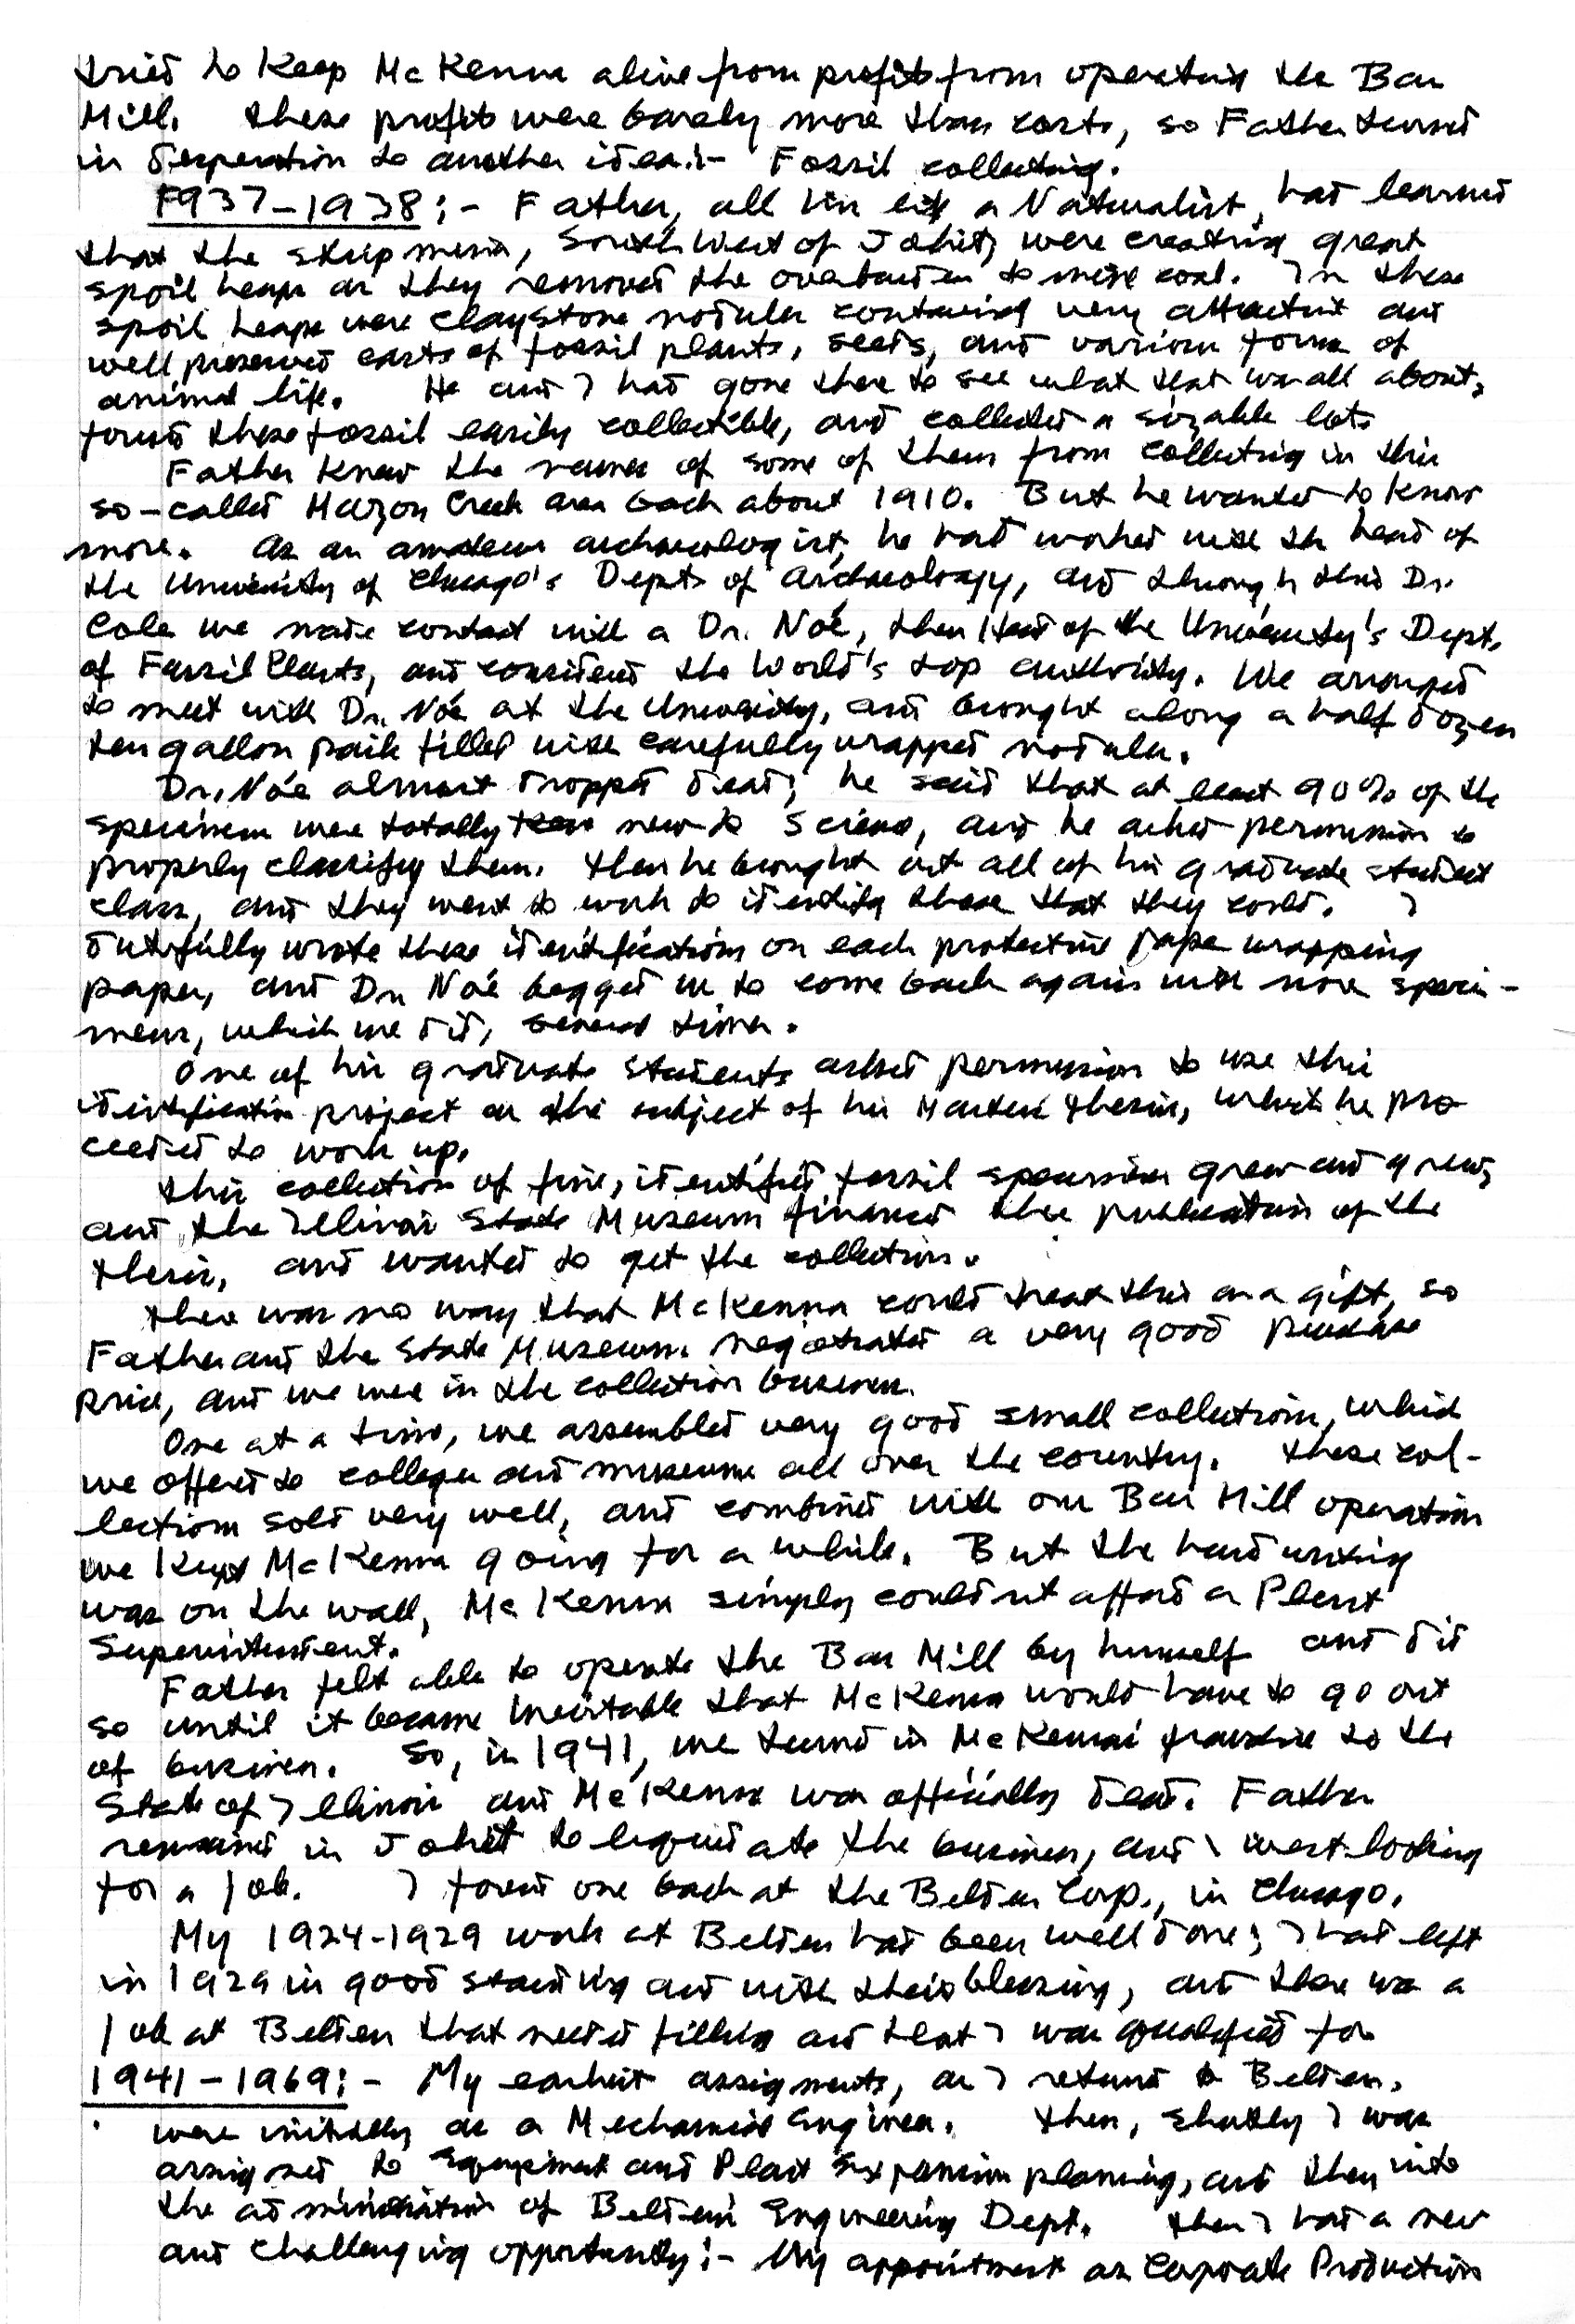 tried to keep McKenna alive from profits from operating the Bar
Mill. These profits were barely more than costs, so Father turned
in desperation to another idea:- Fossil collecting.
1937-1938:- Father, all his life a Naturalist, had learned
that the strip mines, South West of Joliet, were creating great
spoil heaps as they removed the overburden to mine coal. In these
spoil heaps were claystone nodules containing very attractive and
well preserved casts of fossil plants, seeds, and various forms of
animal life. He and I had gone there to see what that was all about,
found these fossils easily collectible, and collected a sizable lot.
Father knew the names of some of them from collecting in this
so-called Mazon Creek area back about 1910. But he wanted to know
more. As an amateur archaeologist, he had worked with the head of
the University of Chicago's Dept. of Archaeology, and through this Dr.
Cole we made contact with a Dr. Noé, then Head of the University's Dept.
of Fossil Plants, and considered the World's top authority. We arranged
to meet with Dr. Noé at the University, and brought along a half dozen
ten gallon pails filled with carefully wrapped nodules.
Dr. Noé almost dropped dead; he said that at least 90% of the
specimens were totally new to Science, and he asked permission to
properly classify them. Then he brought out all of his graduate student
class, and they went to work to identify those that they could. I
dutifully wrote these identifications on each protective paper wrapping
paper, and Dr. Noé begged us to come back again with more speci-
mens, which we did, several times.
One of his graduate students asked permission to use this
identification project as the subject of his Masters thesis, which he pro
ceeded to work up.
This collection of fine, identified fossil specimens grew and grew,
and the Illinois State Museum financed the publication of the
thesis, and wanted to get the collection.
There was no way that McKenna could treat this as a gift, so
Father and the State Museum negotiated a very good purchase
price, and we were in the collection business.
One at a time, we assembled very good small collections, which
we offered to colleges and museums all over the country. These col-
lections sold very well, and combined with our Bar Mill operation
we kept McKenna going for a while. But the hand writing
was on the wall, McKenna simply couldn't afford a Plant
Superintendent.
Father felt able to operate the Bar Mill by himself and did
so until it became inevitable that McKenna would have to go out
of business. So, in 1941, we turned in McKenna's franchise to the
State of Illinois and McKenna was officially dead. Father
remained in Joliet to liquidate the business, and I went looking
for a job. I found one back at the Belden Corp., in Chicago.
My 1924-1929 work at Belden had been well done; I had left
in 1929 in good standing and with their blessing, and there was a
job at Belden that needed filling and that I was qualified for
1941-1969:- My earliest assigments, as I returned to Belden,
were initially as a Mechanical Engineer. Then, shortly I was
assigned to Equipment and Plant Expansion planning, and then into
the administration of Belden's Engineering Dept. Then I had a new
and challenging opportunity:- My appointment as Corporate Production